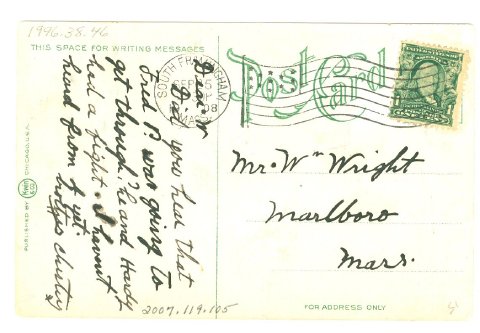 1996.38.46
THIS SPACE FOR WRITING MESSAGES
Post Card
SOUTH FRAMINGHAM
SEP 5
MASS.
Dear W
Did you hear that
Fred P. was going to
get through, he and Hardy
had a fight. I havent
heard from
yet.
PUBLISHED BY
CHICAGO, U.S.A.
Mr. Wm Wright
Marlboro
Mass.
2007.119.105
FOR ADDRESS ONLY